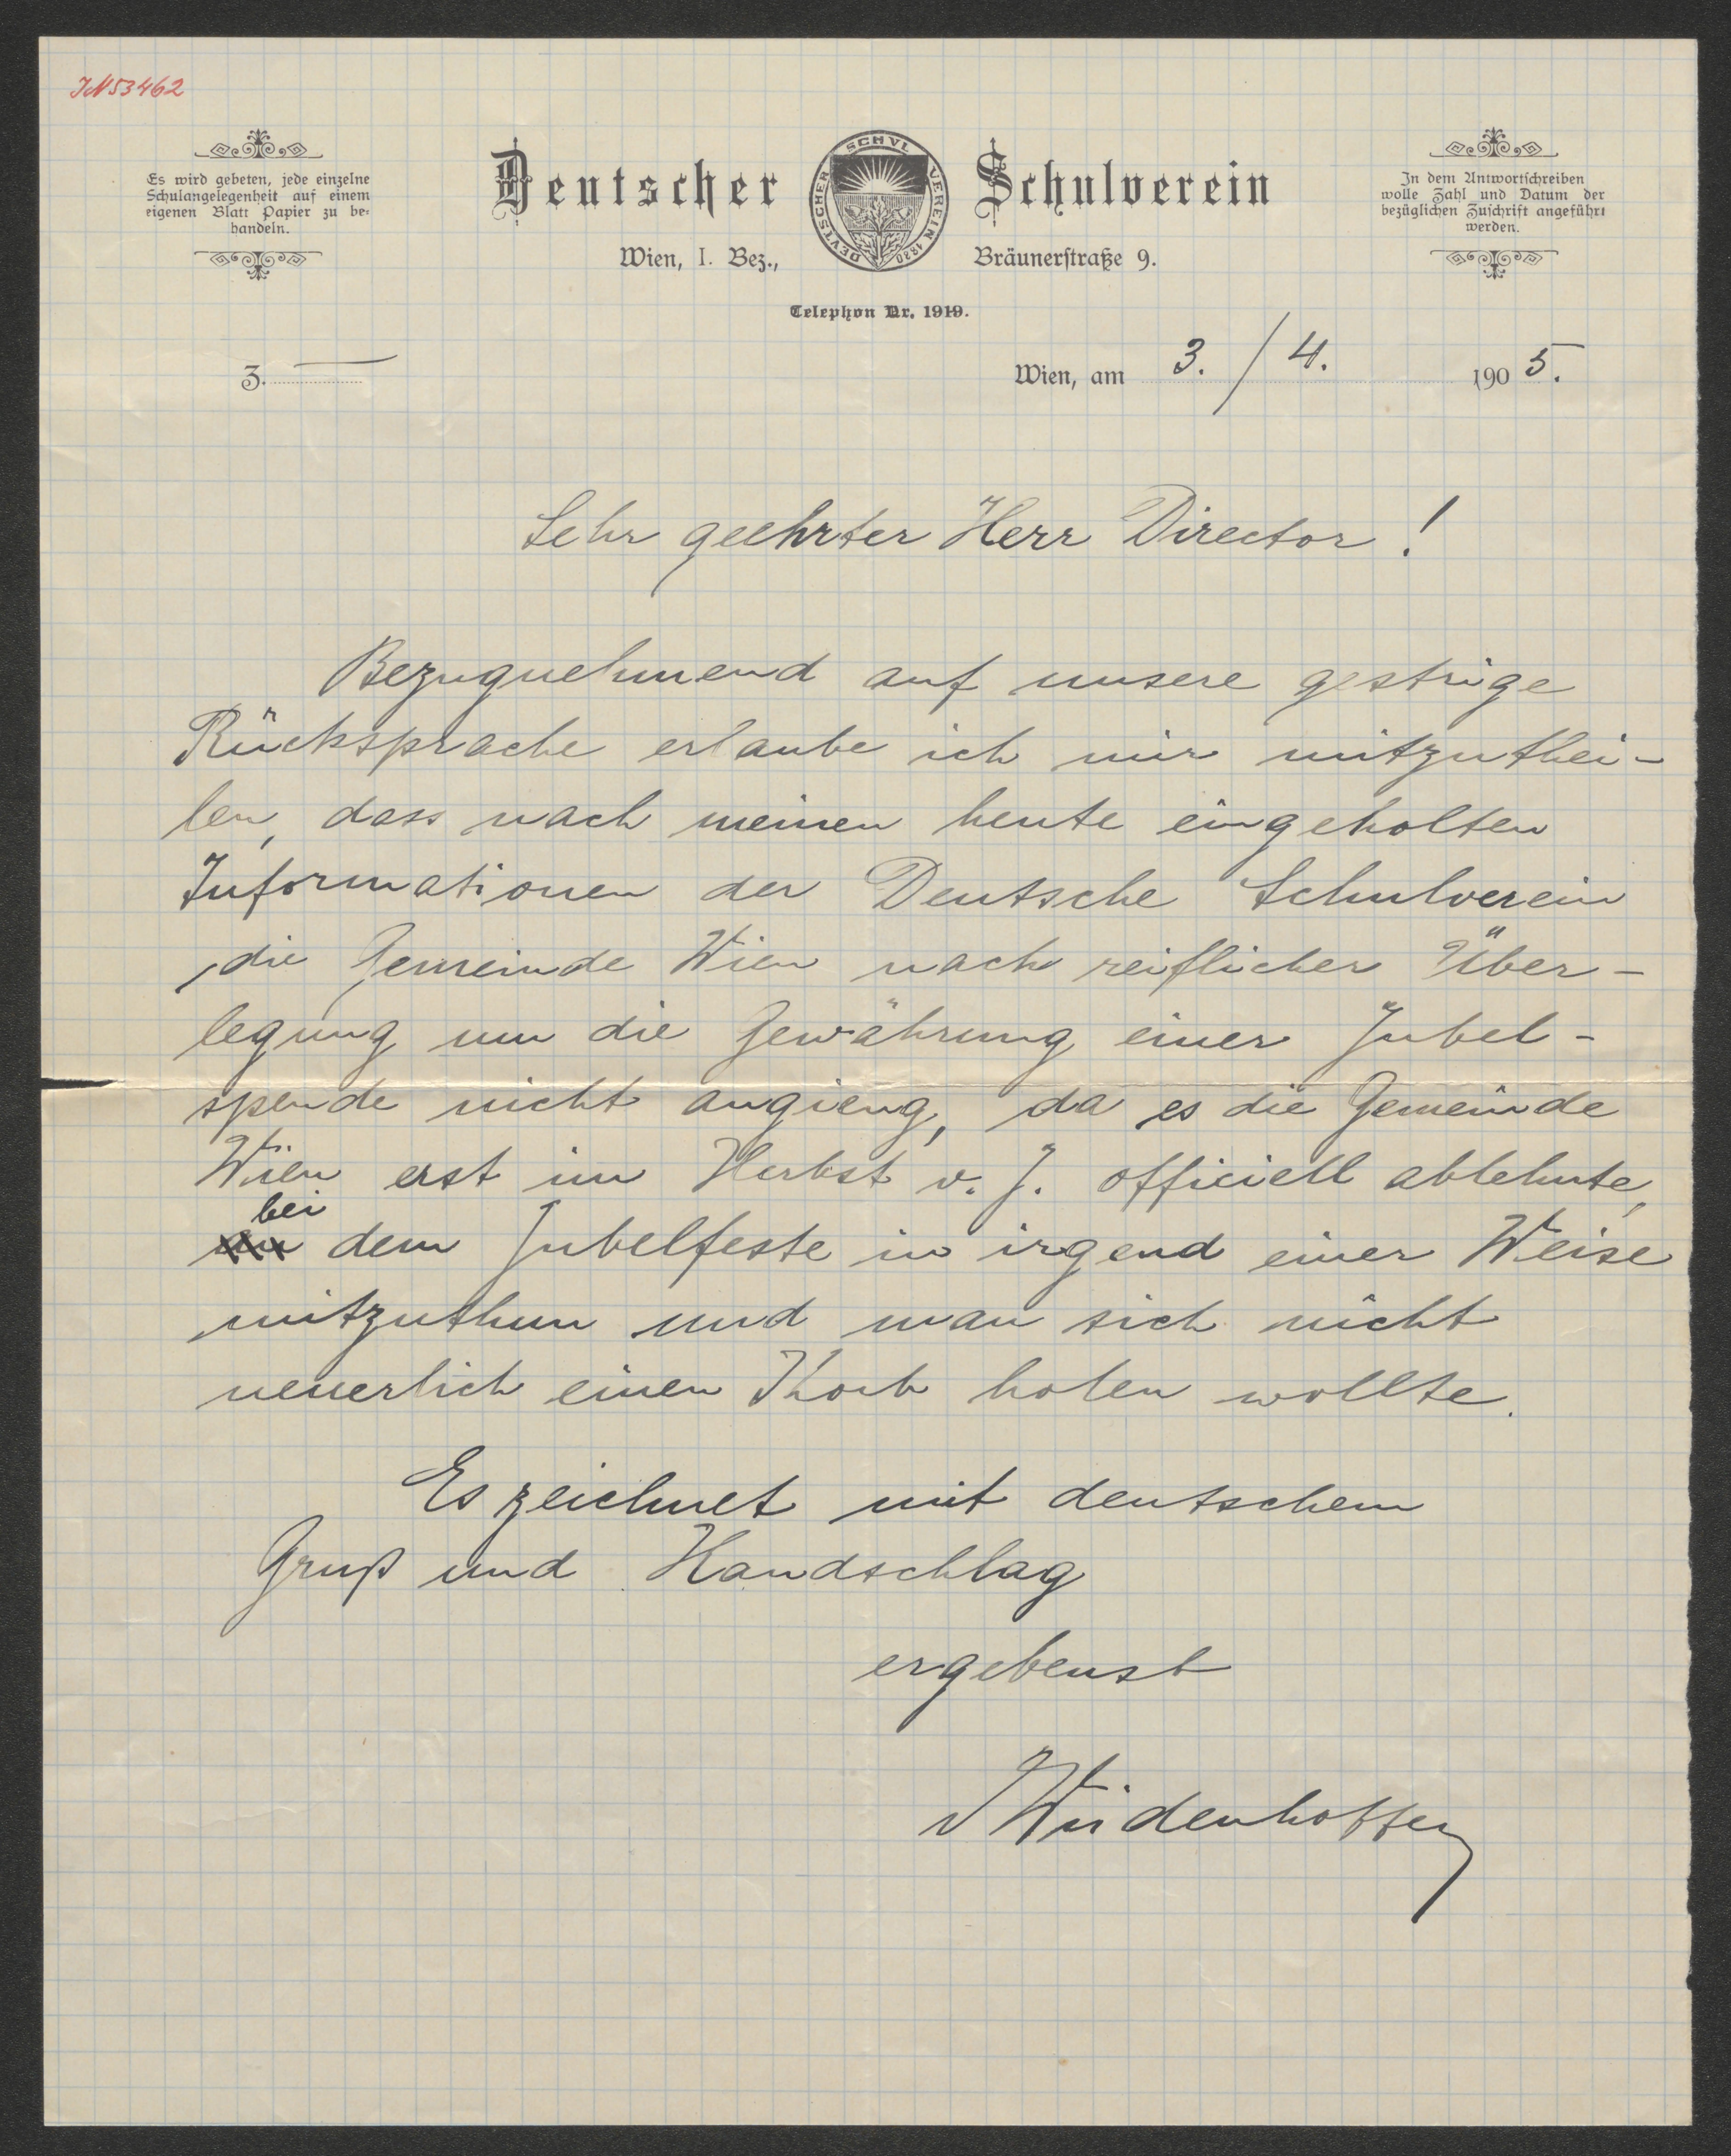 IN 53462
Es wird gebeten, jede einzelne
Schulangelegenheit auf einem
eigenen Blatt Papier zu be-
handeln.
Deutscher Schulverein
DEVTSCHER SCHVL VEREIN 1880
Wien, I. Bez., Bräunerstraße 9.
Telephon Nr. 1919.
In dem Antwortschreiben
wolle Zahl und Datum der
bezüglichen Zuschrift angeführt
werden.
Z.
Wien, am 3. / 4. 1905.
Sehr geehrter Herr Director!
Bezugnehmend auf unsere gestrige
Rücksprache erlaube ich mir mitzuthei-
len, dass nach meinen heute eingeholten
Informationen der Deutsche Schulverein
die Gemeinde Wien nach reiflicher Über-
legung um die Gewährung einer Jubel-
spende nicht angieng, da es die Gemeinde
Wien erst im Herbst v. J. officiell ablehnte,
bei
an dem Jubelfeste in irgend einer Weise
mitzuthun und man sich nicht
neuerlich einen Korb holen wollte.
Es zeichnet mit deutschem
Gruß und Handschlag
ergebenst